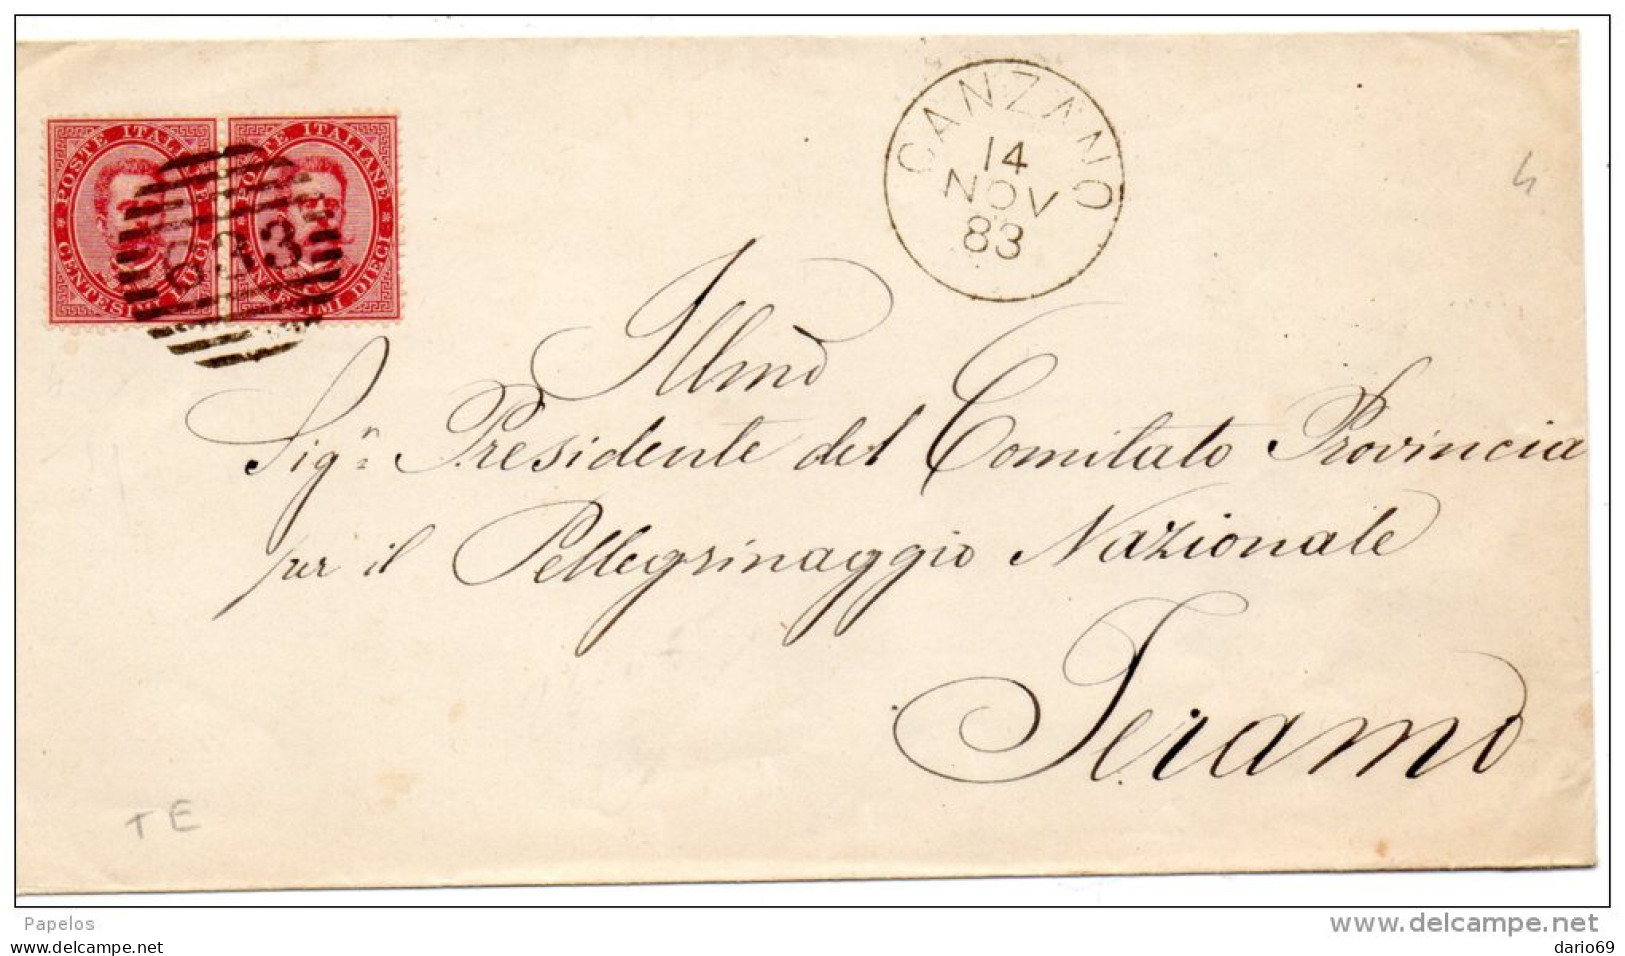 POSTE ITALIANE
CENTESIMI DIECI
POSTE ITALIANE
CENTESIMI DIECI
CANZANO
14
NOV
83
Illmo
Sigr Presidente del Comitato Provincia
per il Pellegrinaggio Nazionale
Teramo
TE
Papelos
www.delcampe.net
dario69